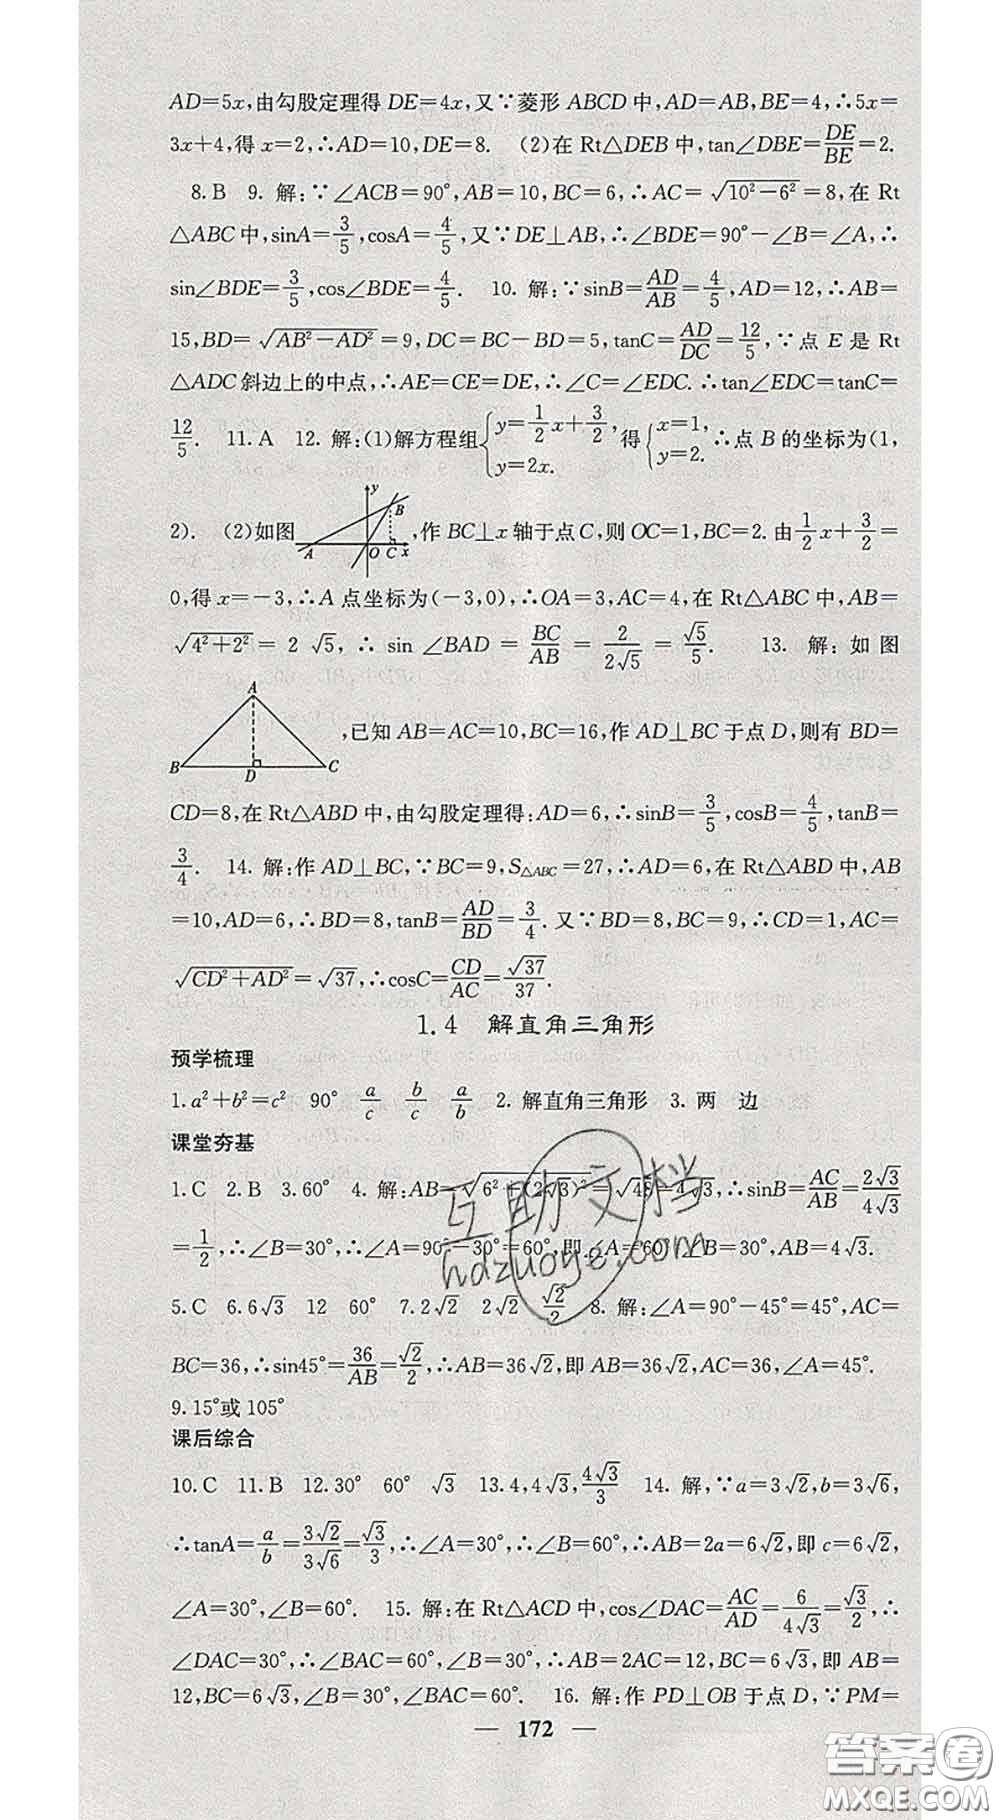 AD=5x,由勾股定理得 DE=4x,又∵菱形 ABCD 中,AD=AB,BE=4,∴5x=
3x+4,得 x=2,∴AD=10,DE=8. (2)在 Rt△DEB 中,tan∠DBE=DE/BE=2.
8.B 9. 解:∵∠ACB=90°,AB=10,BC=6,∴AC=√(10²-6²)=8,在 Rt
△ABC 中,sinA=3/5,cosA=4/5,又∵DE⊥AB,∴∠BDE=90°-∠B=∠A,∴
sin∠BDE=3/5,cos∠BDE=4/5. 10. 解:∵sinB=AD/AB=4/5,AD=12,∴AB=
15,BD=√(AB²-AD²)=9,DC=BC-BD=5,tanC=AD/DC=12/5,∵点 E 是 Rt
△ADC 斜边上的中点,∴AE=CE=DE,∴∠C=∠EDC. ∴tan∠EDC=tanC=
12/5. 11.A 12. 解:(1)解方程组{y=1/2x+3/2, y=2x. 得{x=1, y=2. ∴点 B 的坐标为(1,
2). (2)如图 y B A O C x ,作 BC⊥x 轴于点 C,则 OC=1,BC=2. 由1/2x+3/2=
0,得 x=-3,∴A 点坐标为(-3,0),∴OA=3,AC=4,在 Rt△ABC 中,AB=
√(4²+2²)=2√5,∴sin∠BAD=BC/AB=2/(2√5)=√5/5. 13. 解:如图
A B D C ,已知 AB=AC=10,BC=16,作 AD⊥BC 于点 D,则有 BD=
CD=8,在 Rt△ABD 中,由勾股定理得:AD=6,∴sinB=3/5,cosB=4/5,tanB=
3/4. 14. 解:作 AD⊥BC,∵BC=9,S△ABC=27,∴AD=6,在 Rt△ABD 中,AB
=10,AD=6,∴BD=8,tanB=AD/BD=3/4. 又∵BD=8,BC=9,∴CD=1,AC=
√(CD²+AD²)=√37,∴cosC=CD/AC=√37/37.
1.4 解直角三角形
预学梳理
1.a²+b²=c² 90° a/c b/c a/b 2. 解直角三角形 3. 两 边
课堂夯基
1.C 2.B 3.60° 4. 解:AB=√(6²+(2√3)²)=√48=4√3,∴sinB=AC/AB=2√3/4√3
=1/2,∴∠B=30°,∴∠A=90°-30°=60°,即∠A=60°,∠B=30°,AB=4√3.
5.C 6.6√3 12 60° 7.2√2 2√2 √2/2 8. 解:∠A=90°-45°=45°,AC=
BC=36,∴sin45°=36/AB=√2/2,∴AB=36√2,即 AB=36√2,AC=36,∠A=45°.
9.15°或 105°
课后综合
10.C 11.B 12.30° 60° √3 13.4,4√3,4√3/3 14. 解,∵a=3√2,b=3√6,
∴tanA=a/b=3√2/3√6=√3/3,∴∠A=30°,∴∠B=60°,∴AB=2a=6√2,即 c=6√2,
∠A=30°,∠B=60°. 15. 解:在 Rt△ACD 中,cos∠DAC=AC/AD=6/4√3=√3/2,∴
∠DAC=30°,∴∠BAC=60°,∠B=30°,∴AB=2AC=12,BC=6√3,即 AB=
12,BC=6√3,∠B=30°,∠BAC=60°. 16. 解:作 PD⊥OB 于点 D,∵PM=
— 172 —
互助文档
hdzuoye.com
答案圈
MXQE.COM